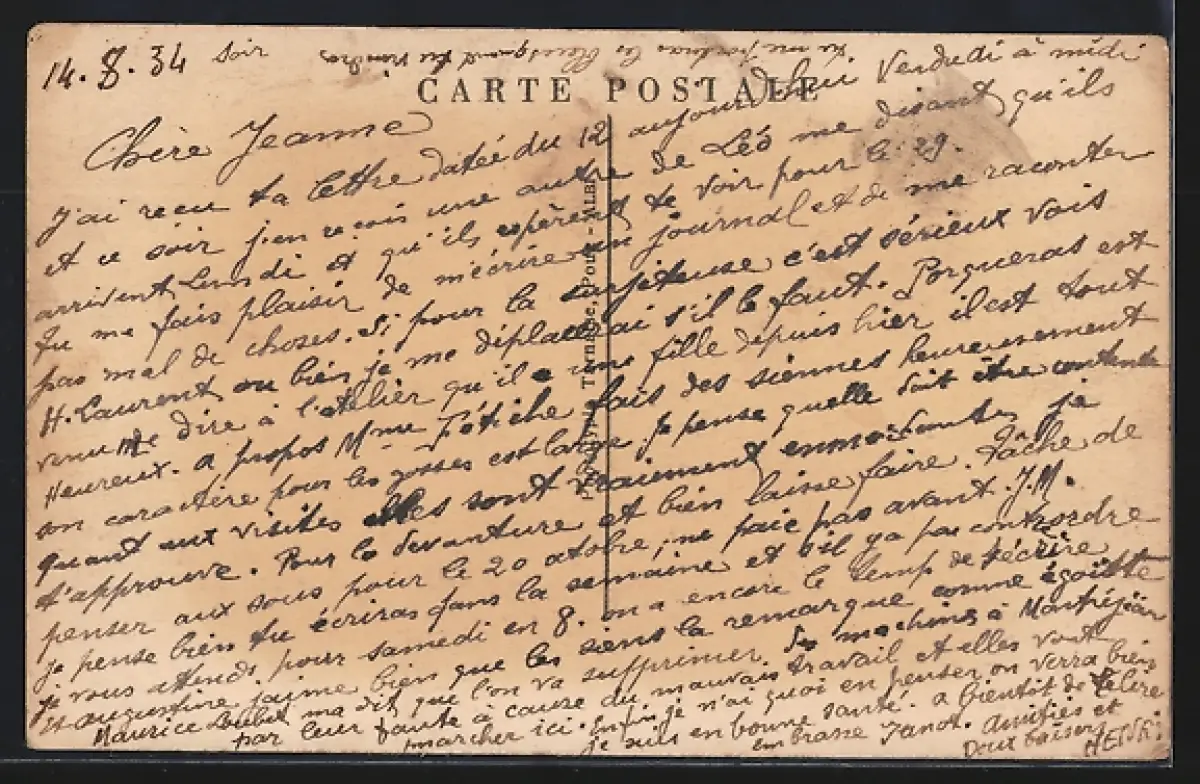 14.8.34 soir
tu me les quand tu viendras
CARTE POSTALE
Chère Jeanne
J'ai reçu ta lettre datée du 12 aujourd'hui Vendredi à midi
et ce soir j'en recois une autre de Léo me disant qu'ils
arrivent Lundi et qu'ils espèrent te voir pour le 29.
Tu me fais plaisir de m'écrire un journal et de me raconter
pas mal de choses. Si pour la surjeteuse c'est sérieux vois
H. Laurent ou bien je me déplacerai s'il le faut. Porqueras est
venu me dire à l'atelier qu'il a une fille depuis hier il est tout
Heureux. a propos Mme Fétiche fais des siennes heureusement
son caractère pour les gosses est large. Je pense quelle doit être contente
quant aux visites elles sont vraiement emmerdantes je
t'approuve. Pour la devanture et bien laisse faire. Tâche de
penser aux sous pour le 20 atobre, ne paie pas avant. J.M.
je pense bien tu écriras dans la semaine et s'il y a pas contrordre
je vous attends pour samedi en 8. on a encore le temp de t'écrire
et augustine j'aime bien que les siens la remarque comme égoïste
Maurice Loubet ma dit que l'on va supprimer les machines à Montréjeau
par leur faute à cause du mauvais travail et elles vont
marcher ici. Enfin je n'ai quoi en penser on verra bien
je suis en bonne santé. a bientôt de te lire
embrasse Janot. Amitiés et
Doux baisers HENRI